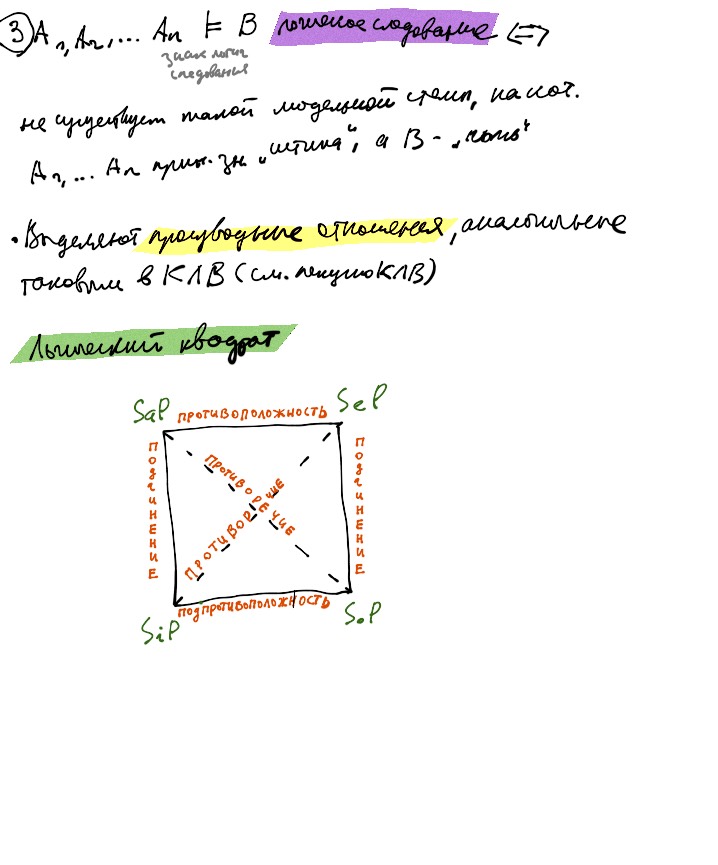 ③ A₁, A₂, ... Aₙ ⊨ B логическое следование ⟺
знак логич
следования
не существует такой модельной схемы, на кот.
A₁, ... Aₙ прин. зн. „истина“, а B - „ложь“
• Выделяют производные отношения, аналогичные
таковым в КЛВ (см. лекцию КЛВ)
Логический квадрат
SaP ПРОТИВОПОЛОЖНОСТЬ SeP
ПОДЧИНЕНИЕ
ПРОТИВОРЕЧИЕ
ПРОТИВОРЕЧИЕ
ПОДЧИНЕНИЕ
SiP ПОДПРОТИВОПОЛОЖНОСТЬ SoP